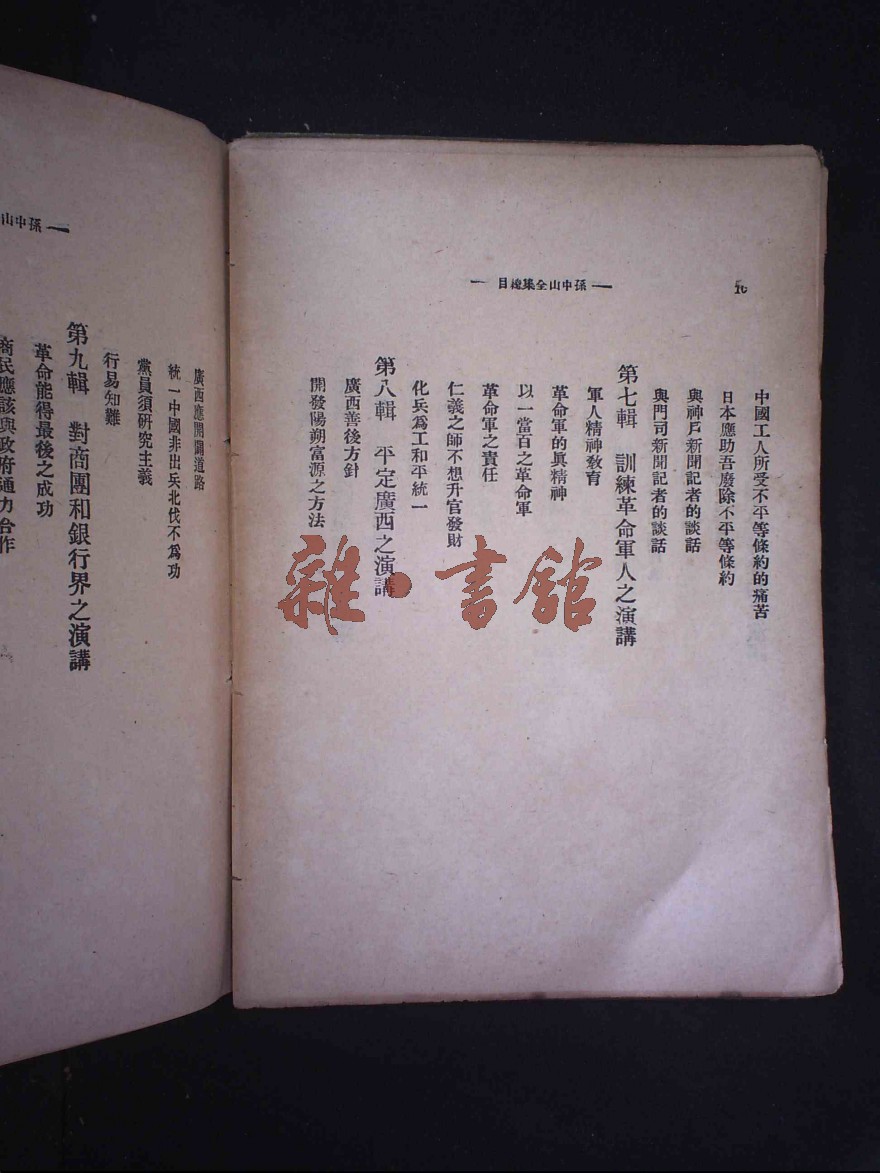 16
孫中山全集總目
中國工人所受不平等條約的痛苦
日本應助吾廢除不平等條約
與神戶新聞記者的談話
與門司新聞記者的談話
第七輯 訓練革命軍人之演講
軍人精神教育
革命軍的眞精神
以一當百之革命軍
革命軍之責任
仁義之師不想升官發財
化兵爲工和平統一
第八輯 平定廣西之演講
廣西善後方針
開發陽朔富源之方法
孫中山
廣西應開闢道路
統一中國非出兵北伐不爲功
黨員須研究主義
行易知難
第九輯 對商團和銀行界之演講
革命能得最後之成功
商民應該與政府通力合作
雜·書館